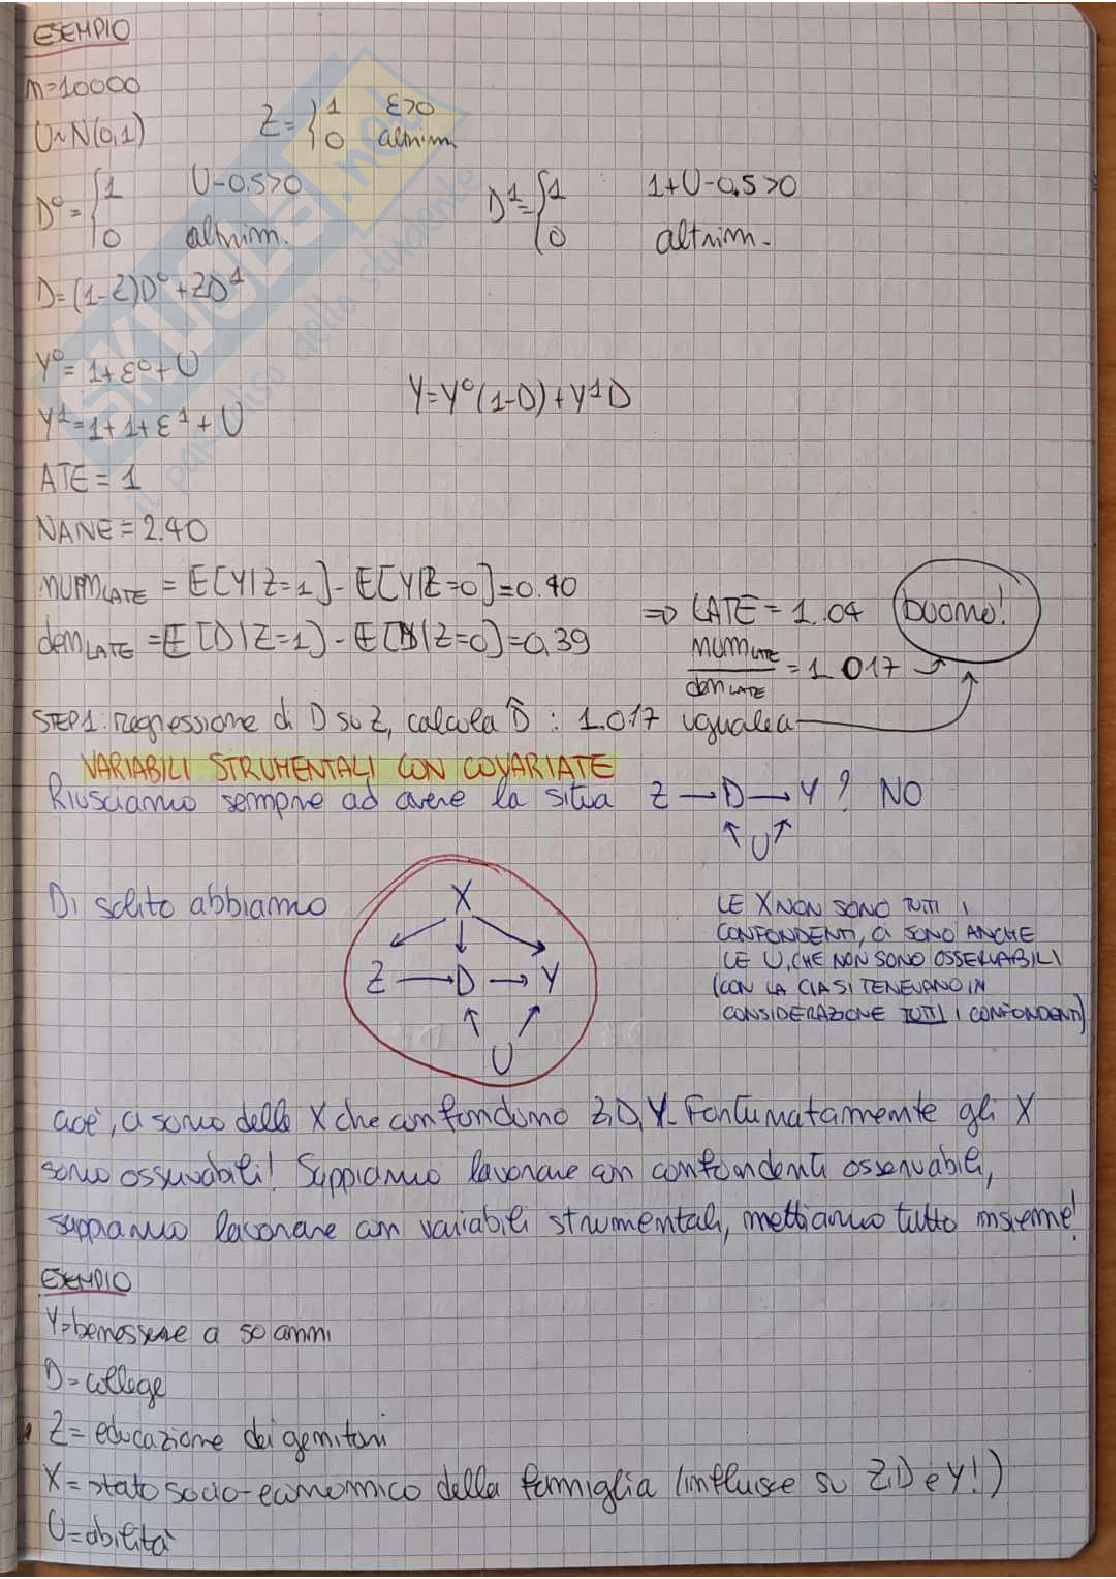 ESEMPIO
n=10000
U~N(0,1)
Z={1 ε>0
0 altrim.
D⁰={1 U-0.5>0
0 altrim.
D¹={1 1+U-0.5>0
0 altrim.
D=(1-Z)D⁰+ZD¹
Y⁰=1+ε⁰+U
Y=Y⁰(1-D)+Y¹D
Y¹=1+1+ε¹+U
ATE=1
NAIVE=2.40
num_LATE = E[Y|Z=1]-E[Y|Z=0]=0.40
den_LATE =E[D|Z=1]-E[D|Z=0]=0,39
⇒ LATE=1.04 buono!
num_LATE/den_LATE =1.017
STEP1: regressione di D su Z, calcola D̂ : 1.017 uguale a
VARIABILI STRUMENTALI CON COVARIATE
Riusciamo sempre ad avere la situa Z→D→Y? NO
U
Di solito abbiamo
X
Z → D → Y
U
LE X NON SONO TUTTI I
CONFONDENTI, CI SONO ANCHE
LE U, CHE NON SONO OSSERVABILI
(CON LA CIA SI TENEVANO IN
CONSIDERAZIONE TUTTI I CONFONDENTI)
cioè, ci sono delle X che confondono Z,D,Y. Fortunatamente gli X
sono osservabili! Sappiamo lavorare con confondenti osservabili,
sappiamo lavorare con variabili strumentali, mettiamo tutto insieme!
ESEMPIO
Y=benessere a 50 anni
D=college
Z= educazione dei genitori
X= stato socio-economico della famiglia (influisce su Z,D e Y!)
U=abilità
SKUOLA.net
il paradiso dello studente